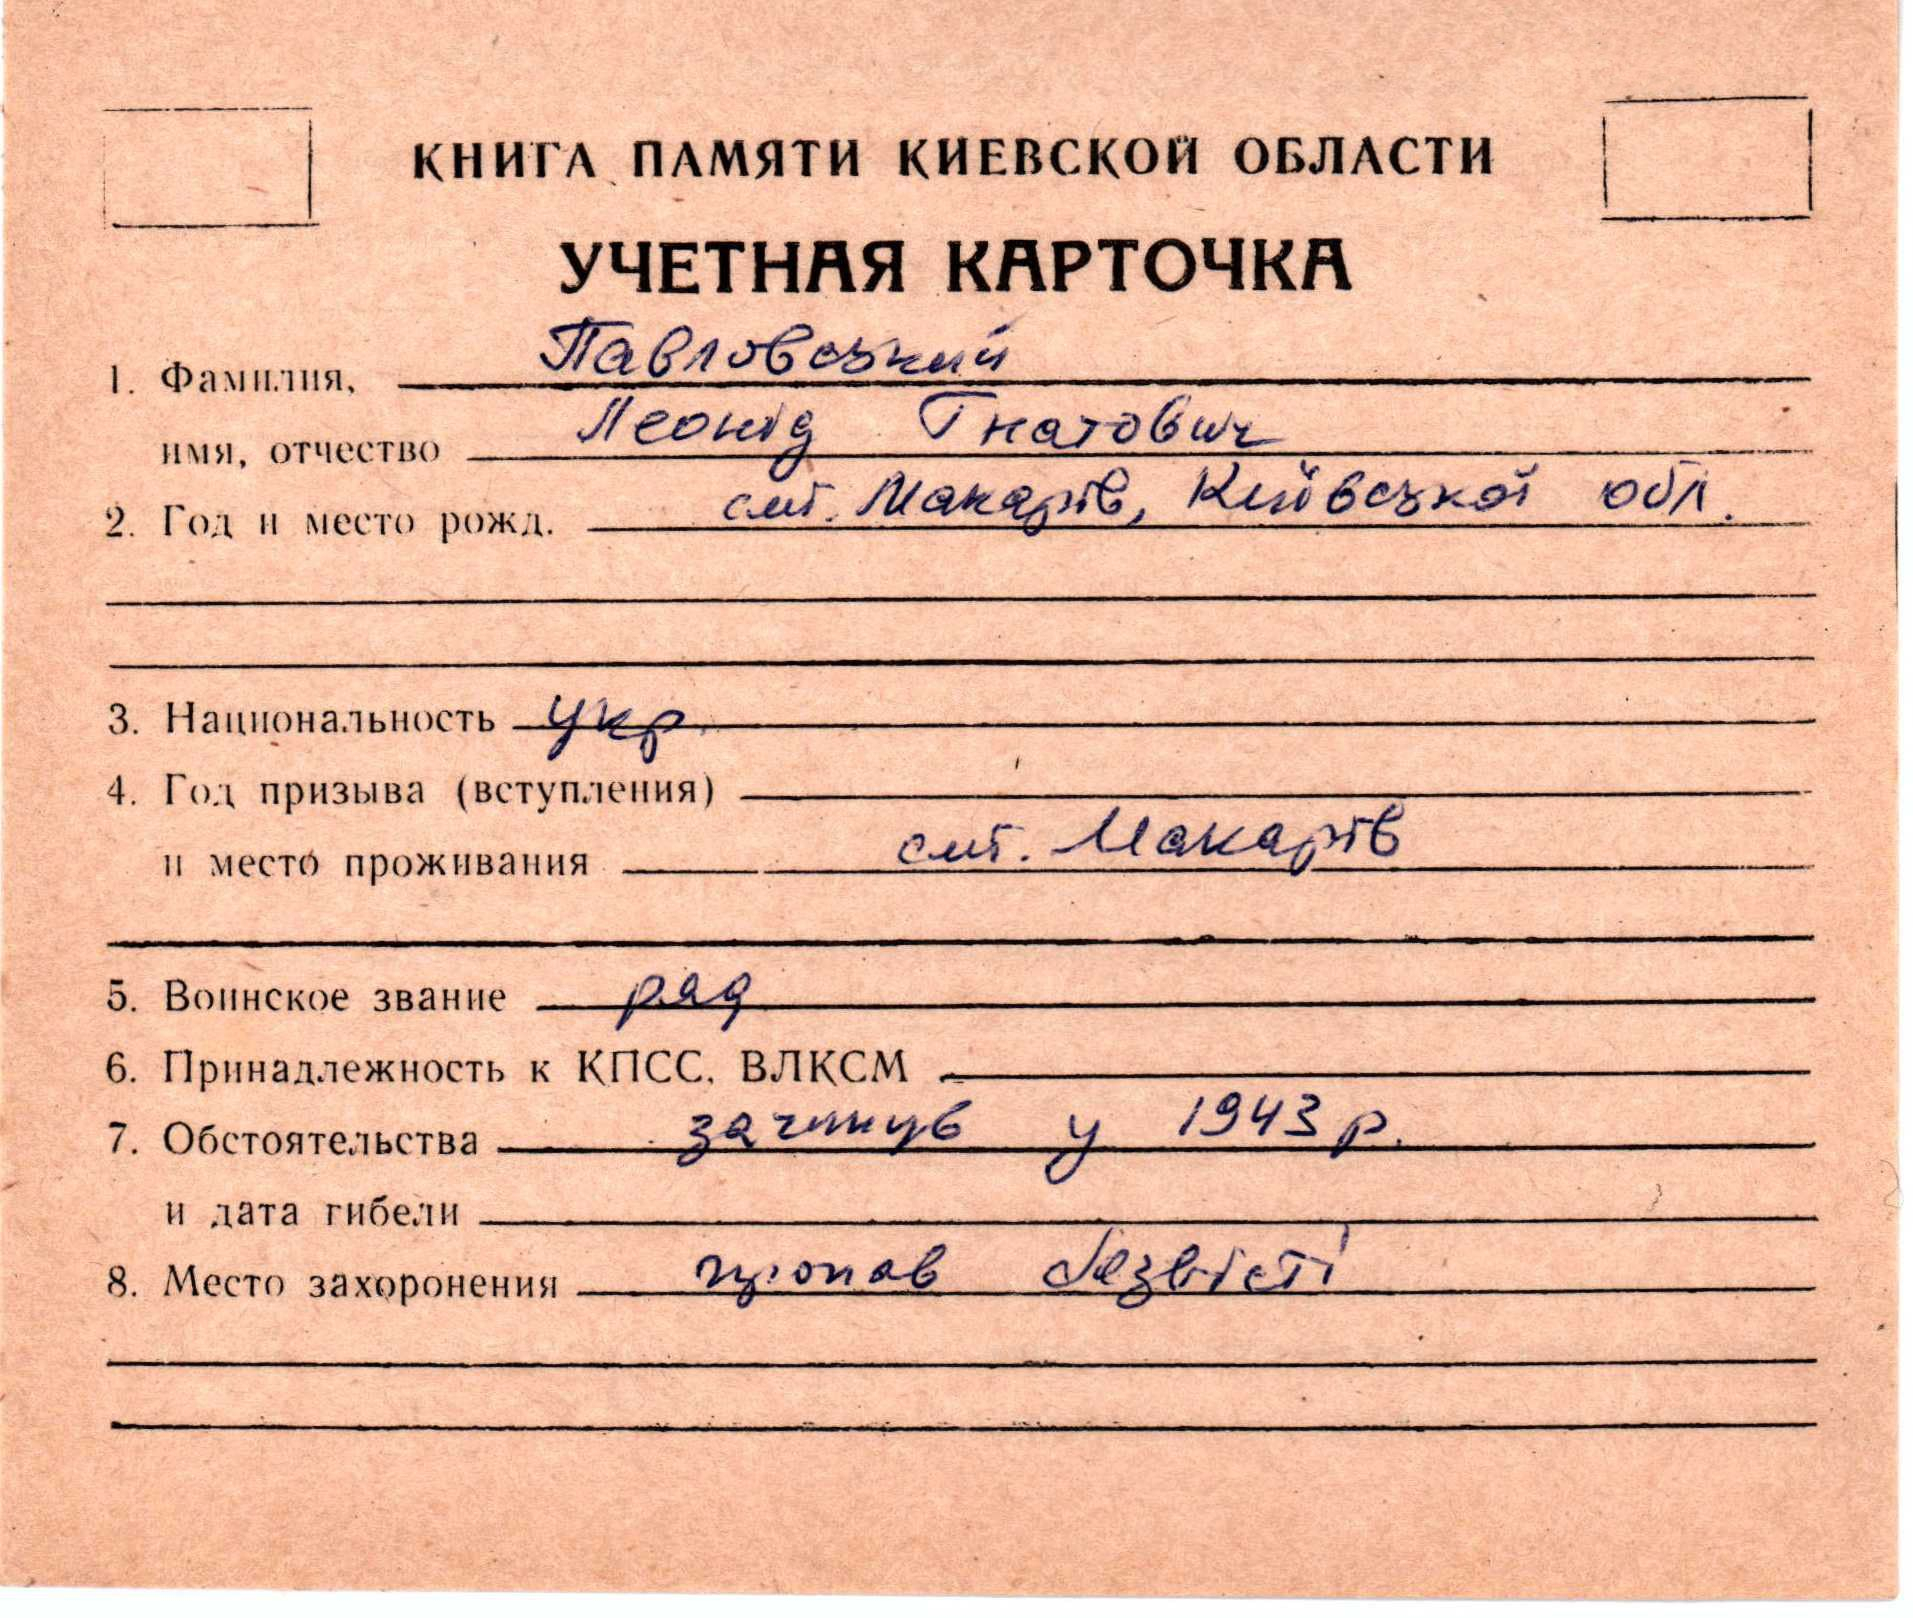 КНИГА ПАМЯТИ КИЕВСКОЙ ОБЛАСТИ
УЧЕТНАЯ КАРТОЧКА
1. Фамилия, Павловський
имя, отчество Леонід Гнатович
2. Год и место рожд. смт. Макарів, Київської обл.
3. Национальность укр.
4. Год призыва (вступления)
и место проживания смт. Макарів
5. Воинское звание ряд
6. Принадлежность к КПСС, ВЛКСМ
7. Обстоятельства загинув у 1943 р.
и дата гибели
8. Место захоронения пропав безвісті